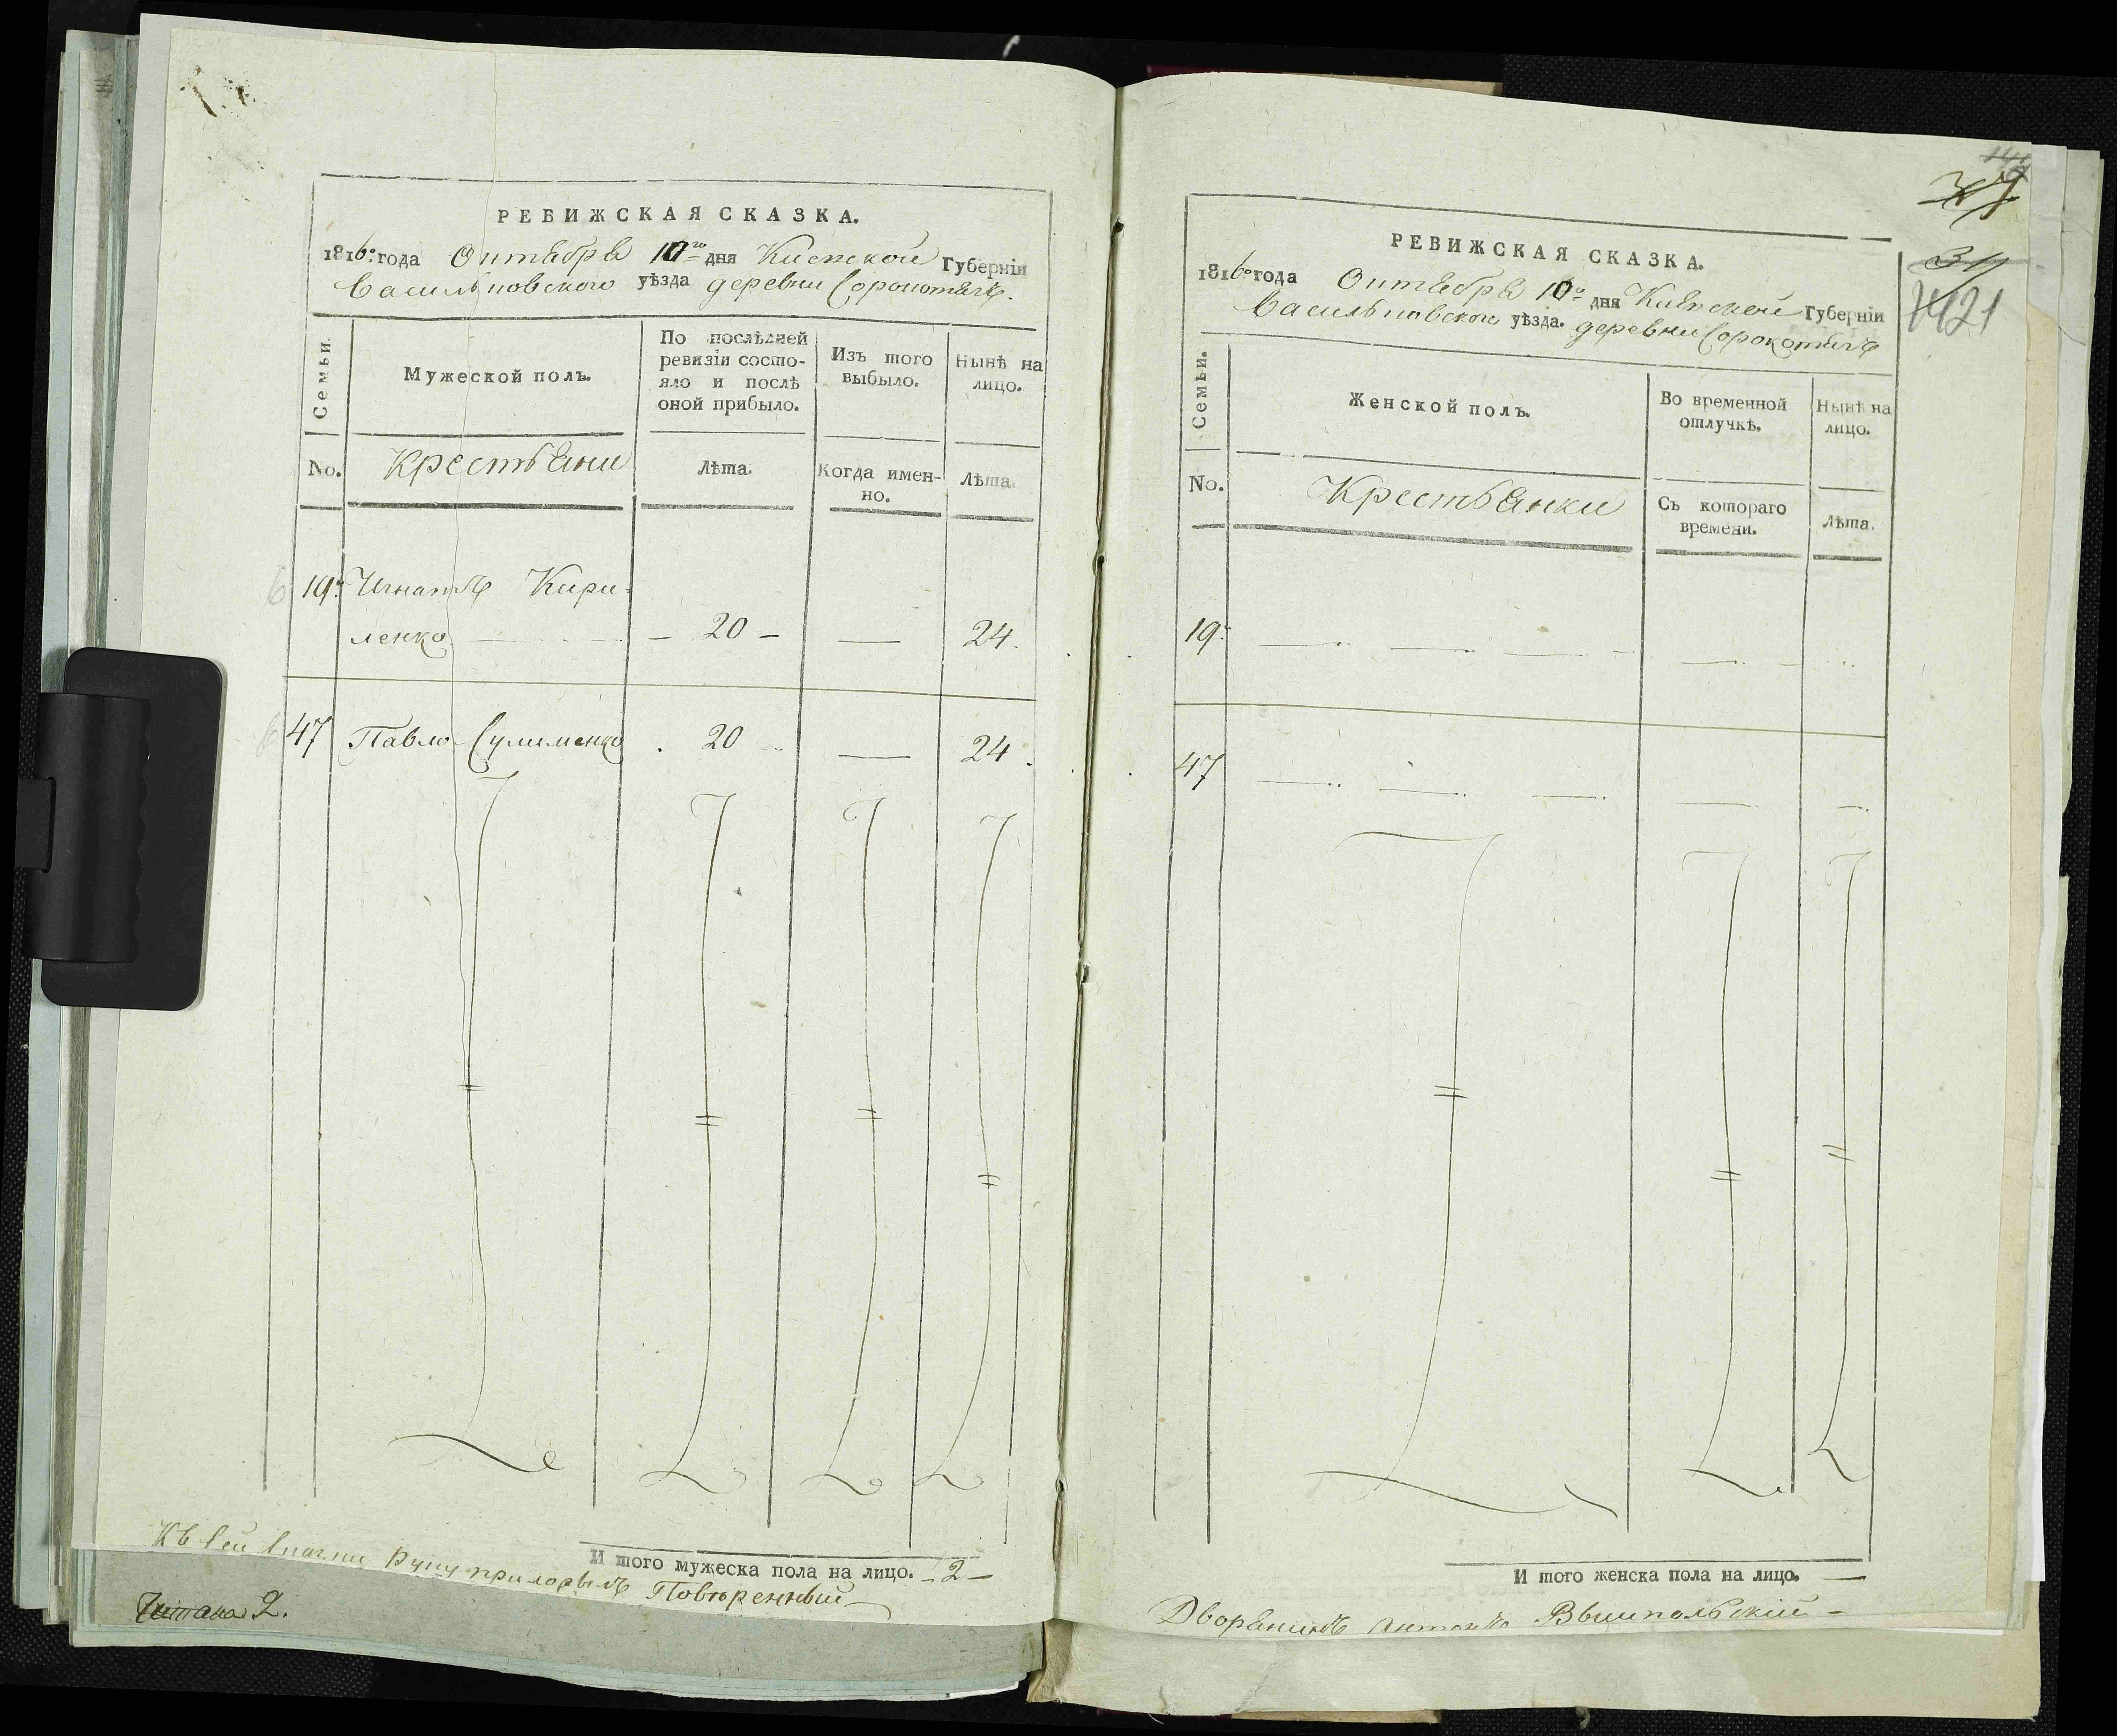 РЕВИЖСКАЯ СКАЗКА.
1816го года Октября 10го дня Киевской Губернiи
Васильковского уѣзда деревни Сорокотягъ.
Семьи.
Мужеской полъ.
По послѣдней ревизiи состо-
яло и послѣ оной прибыло.
Изъ того выбыло.
Нынѣ на лицо.
No.
Крестьяни
Лѣта.
Когда имен-
но.
Лѣта.
19. Игнатъ Кири-
ленко — 20 — — 24.
47 Павло Сулименко . 20 — 24.
И того мужеска пола на лицо. — 2 —
Къ сей скаски руку приложилъ Повѣренный
Читана 2.
34
1421
РЕВИЖСКАЯ СКАЗКА.
1816го года Октября 10го дня Киевской Губернiи
Васильковского уѣзда. деревни Сорокотягъ
Семьи.
Женской полъ.
Во временной отлучкѣ.
Нынѣ на лицо.
No.
Крестьянки
Съ котораго времени.
Лѣта.
19.
47
И того женска пола на лицо. —
Дворянинъ Антонъ Вышпольскiй —